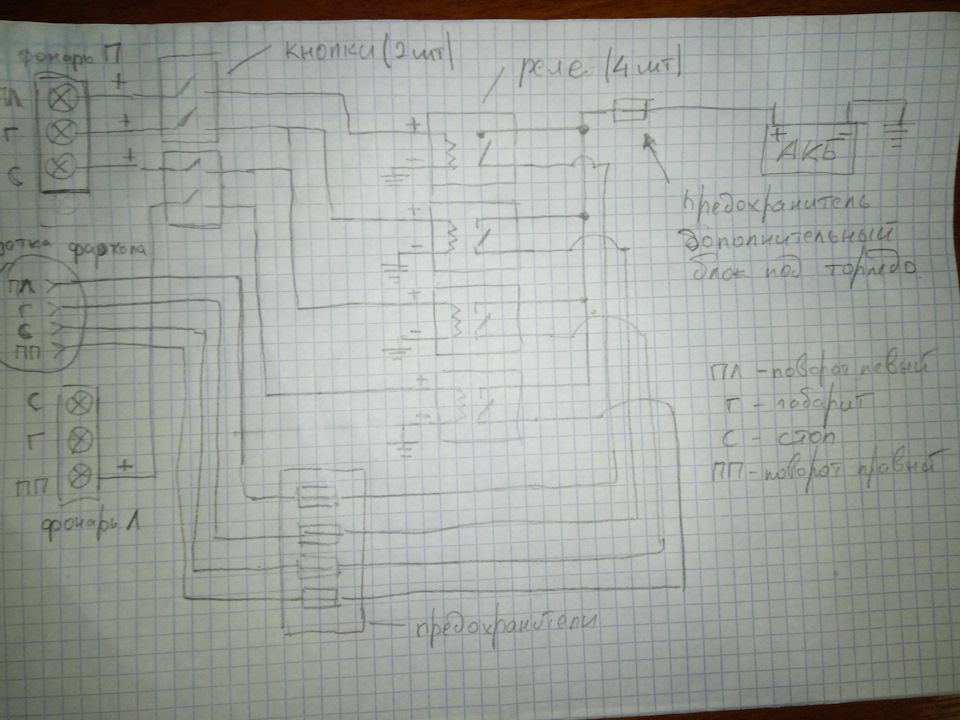 фонарь П
кнопки (2шт)
реле (4шт)
ПЛ
Г
С
+
+
+
+
-
+
-
АКБ
Предохранитель
дополнительный
блок под торпедо.
фаркопа
ПЛ
Г
С
ПП
+
-
+
-
+
-
ПЛ - поворот левый
Г - габарит
С - стоп
ПП - поворот правый
С
Г
ПП
+
фонарь Л
предохранители